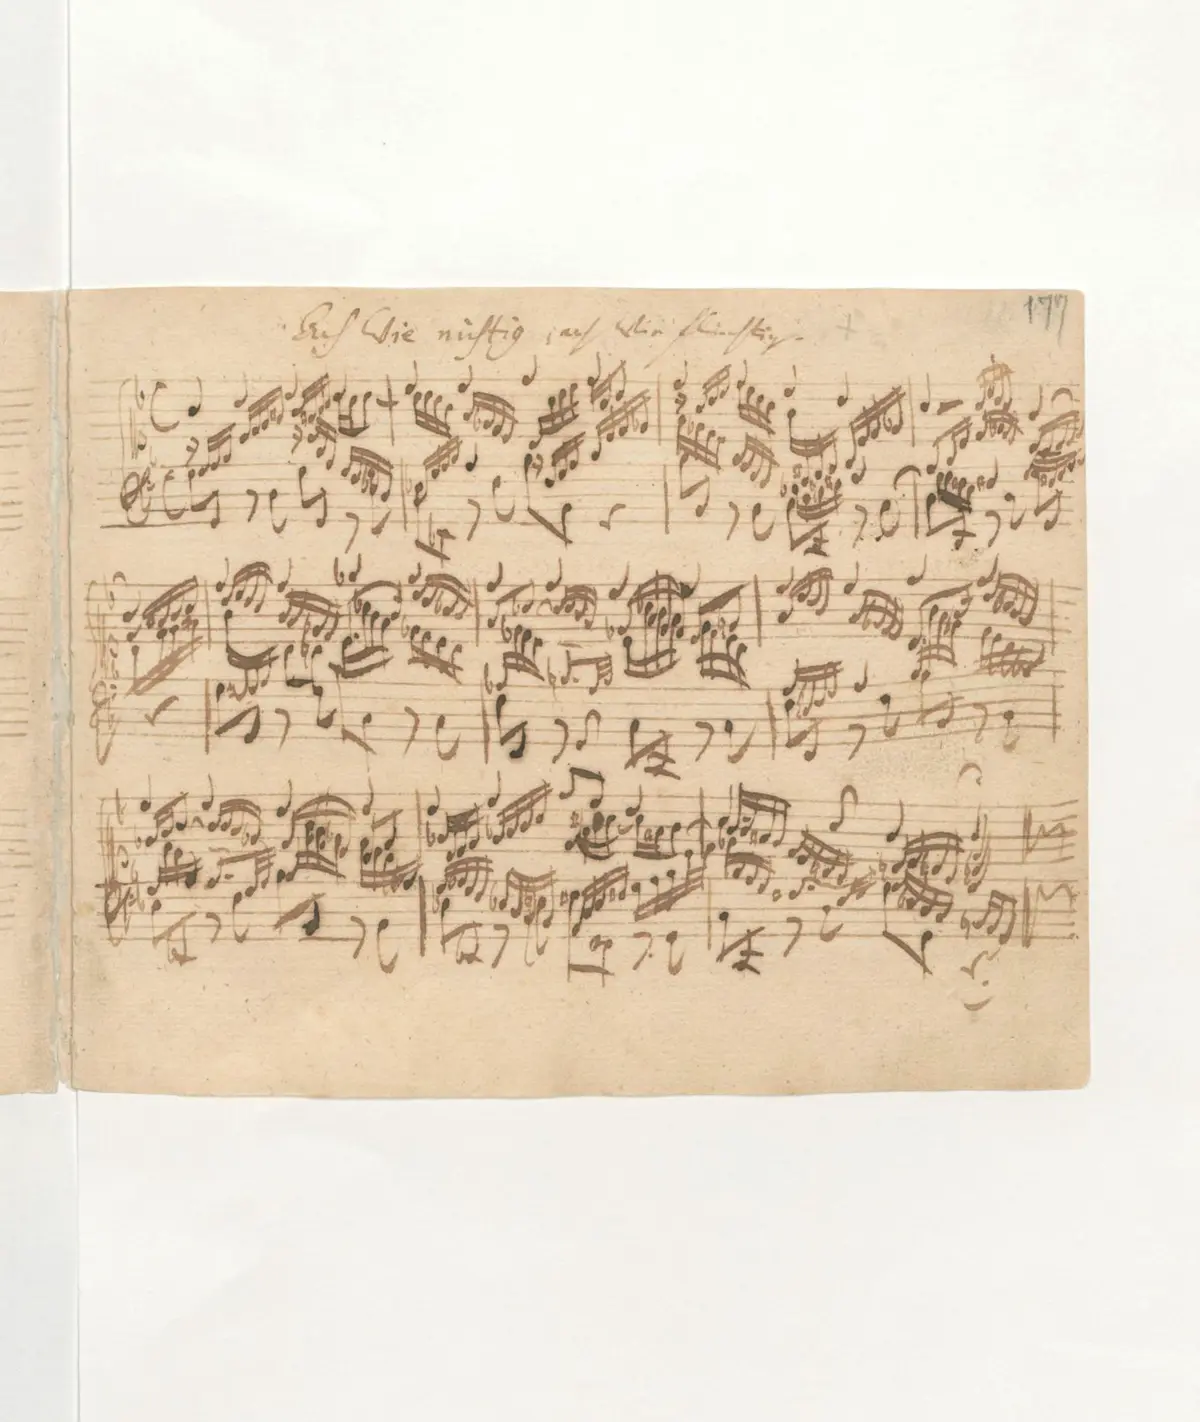 Ach wie nichtig, ach wie flüchtig.
177